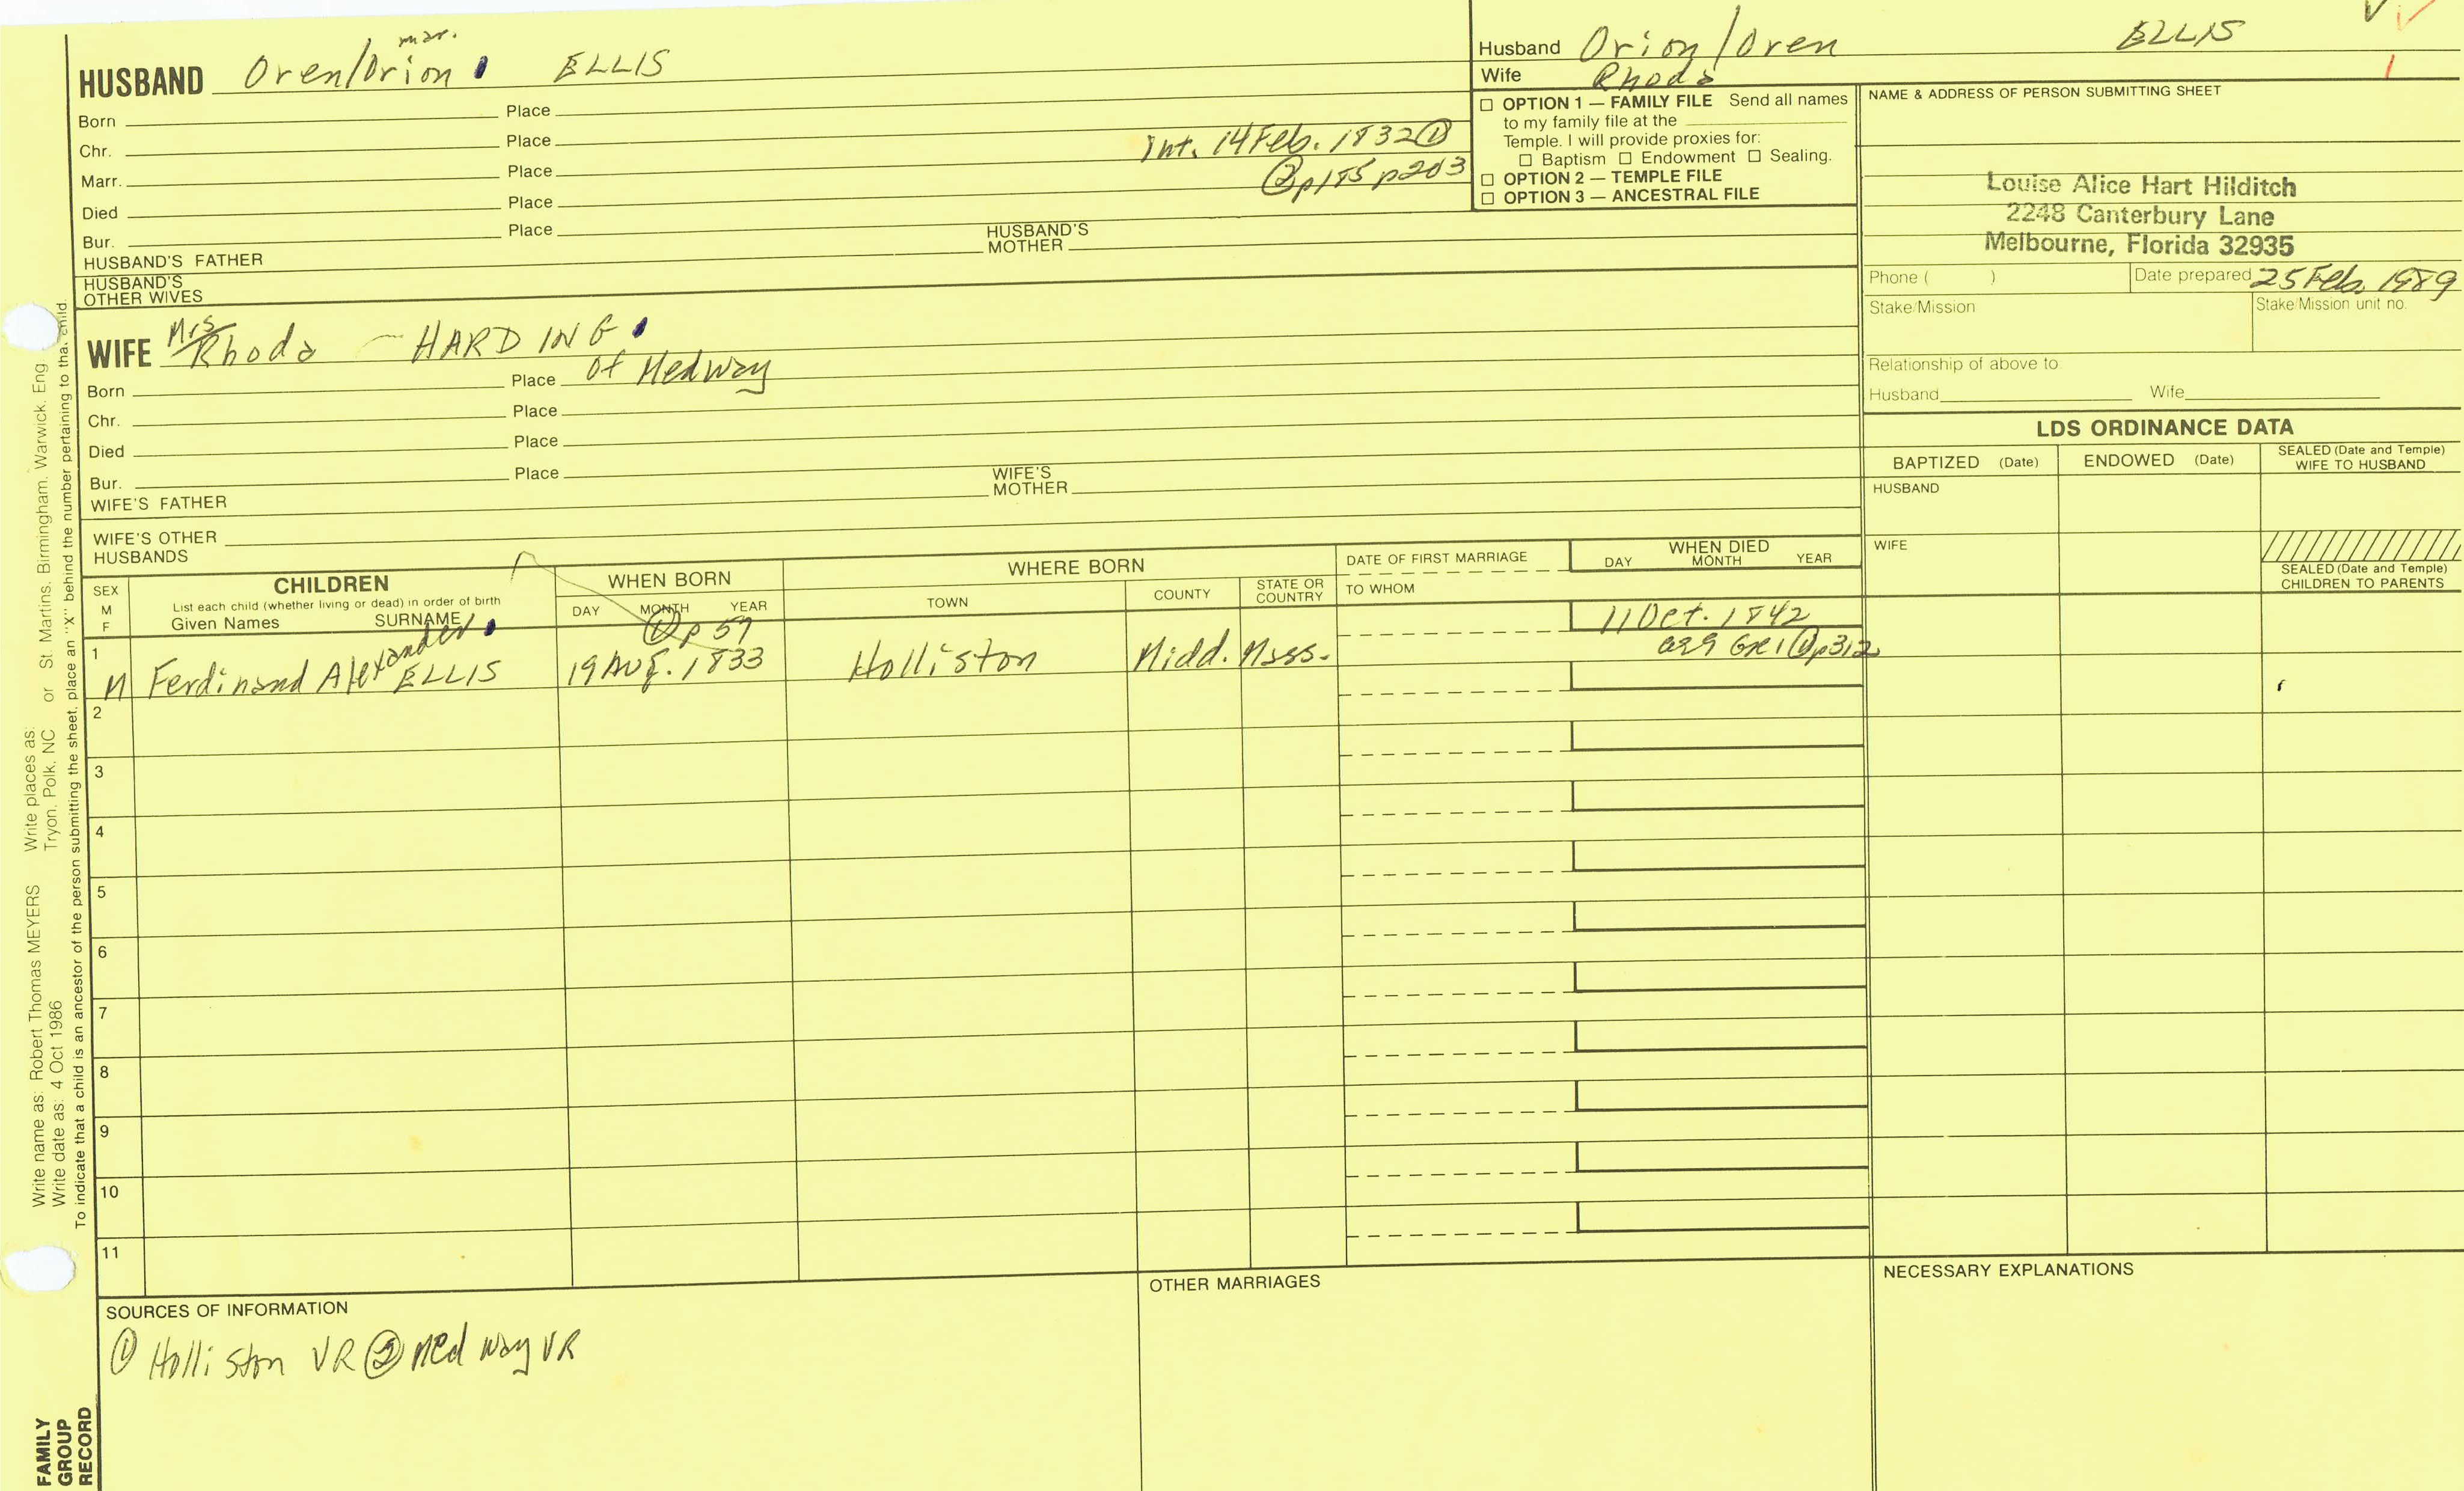 mar.
HUSBAND Oren/Orion ELLIS
Born Place
Chr. Place
Int. 14 Feb. 1832 ①
Marr. Place
② p155 p203
Died Place
Bur. Place
HUSBAND'S FATHER HUSBAND'S MOTHER
HUSBAND'S
OTHER WIVES
Husband Orion/Oren ELLIS
Wife Rhoda
☐ OPTION 1 — FAMILY FILE Send all names
to my family file at the
Temple. I will provide proxies for:
☐ Baptism ☐ Endowment ☐ Sealing.
☐ OPTION 2 — TEMPLE FILE
☐ OPTION 3 — ANCESTRAL FILE
NAME & ADDRESS OF PERSON SUBMITTING SHEET
Louise Alice Hart Hilditch
2248 Canterbury Lane
Melbourne, Florida 32935
Phone ( ) Date prepared 25 Feb. 1989
Stake/Mission Stake/Mission unit no.
Relationship of above to
Husband Wife
Mrs
WIFE Rhoda HARDING
Born Place of Medway
Chr. Place
Died Place
Bur. Place
WIFE'S FATHER WIFE'S MOTHER
WIFE'S OTHER
HUSBANDS
LDS ORDINANCE DATA
BAPTIZED (Date) ENDOWED (Date) SEALED (Date and Temple)
WIFE TO HUSBAND
HUSBAND
WIFE
SEALED (Date and Temple)
CHILDREN TO PARENTS
SEX
M
F
CHILDREN
List each child (whether living or dead) in order of birth
Given Names SURNAME
WHEN BORN
DAY MONTH YEAR
WHERE BORN
TOWN COUNTY STATE OR
COUNTRY
DATE OF FIRST MARRIAGE
TO WHOM
WHEN DIED
DAY MONTH YEAR
① p 57
11 Oct. 1842
a29 GR1 ① p312
1 M Ferdinand Alexander ELLIS 19 Aug. 1833 Holliston Midd. Mass.
2
3
4
5
6
7
8
9
10
11
SOURCES OF INFORMATION
① Holliston VR ② Medway VR
OTHER MARRIAGES
NECESSARY EXPLANATIONS
Write name as: Robert Thomas MEYERS Write places as:
Write date as: 4 Oct 1986 Tryon, Polk, NC or St. Martins, Birmingham, Warwick, Eng
To indicate that a child is an ancestor of the person submitting the sheet, place an "X" behind the number pertaining to that child.
FAMILY
GROUP
RECORD